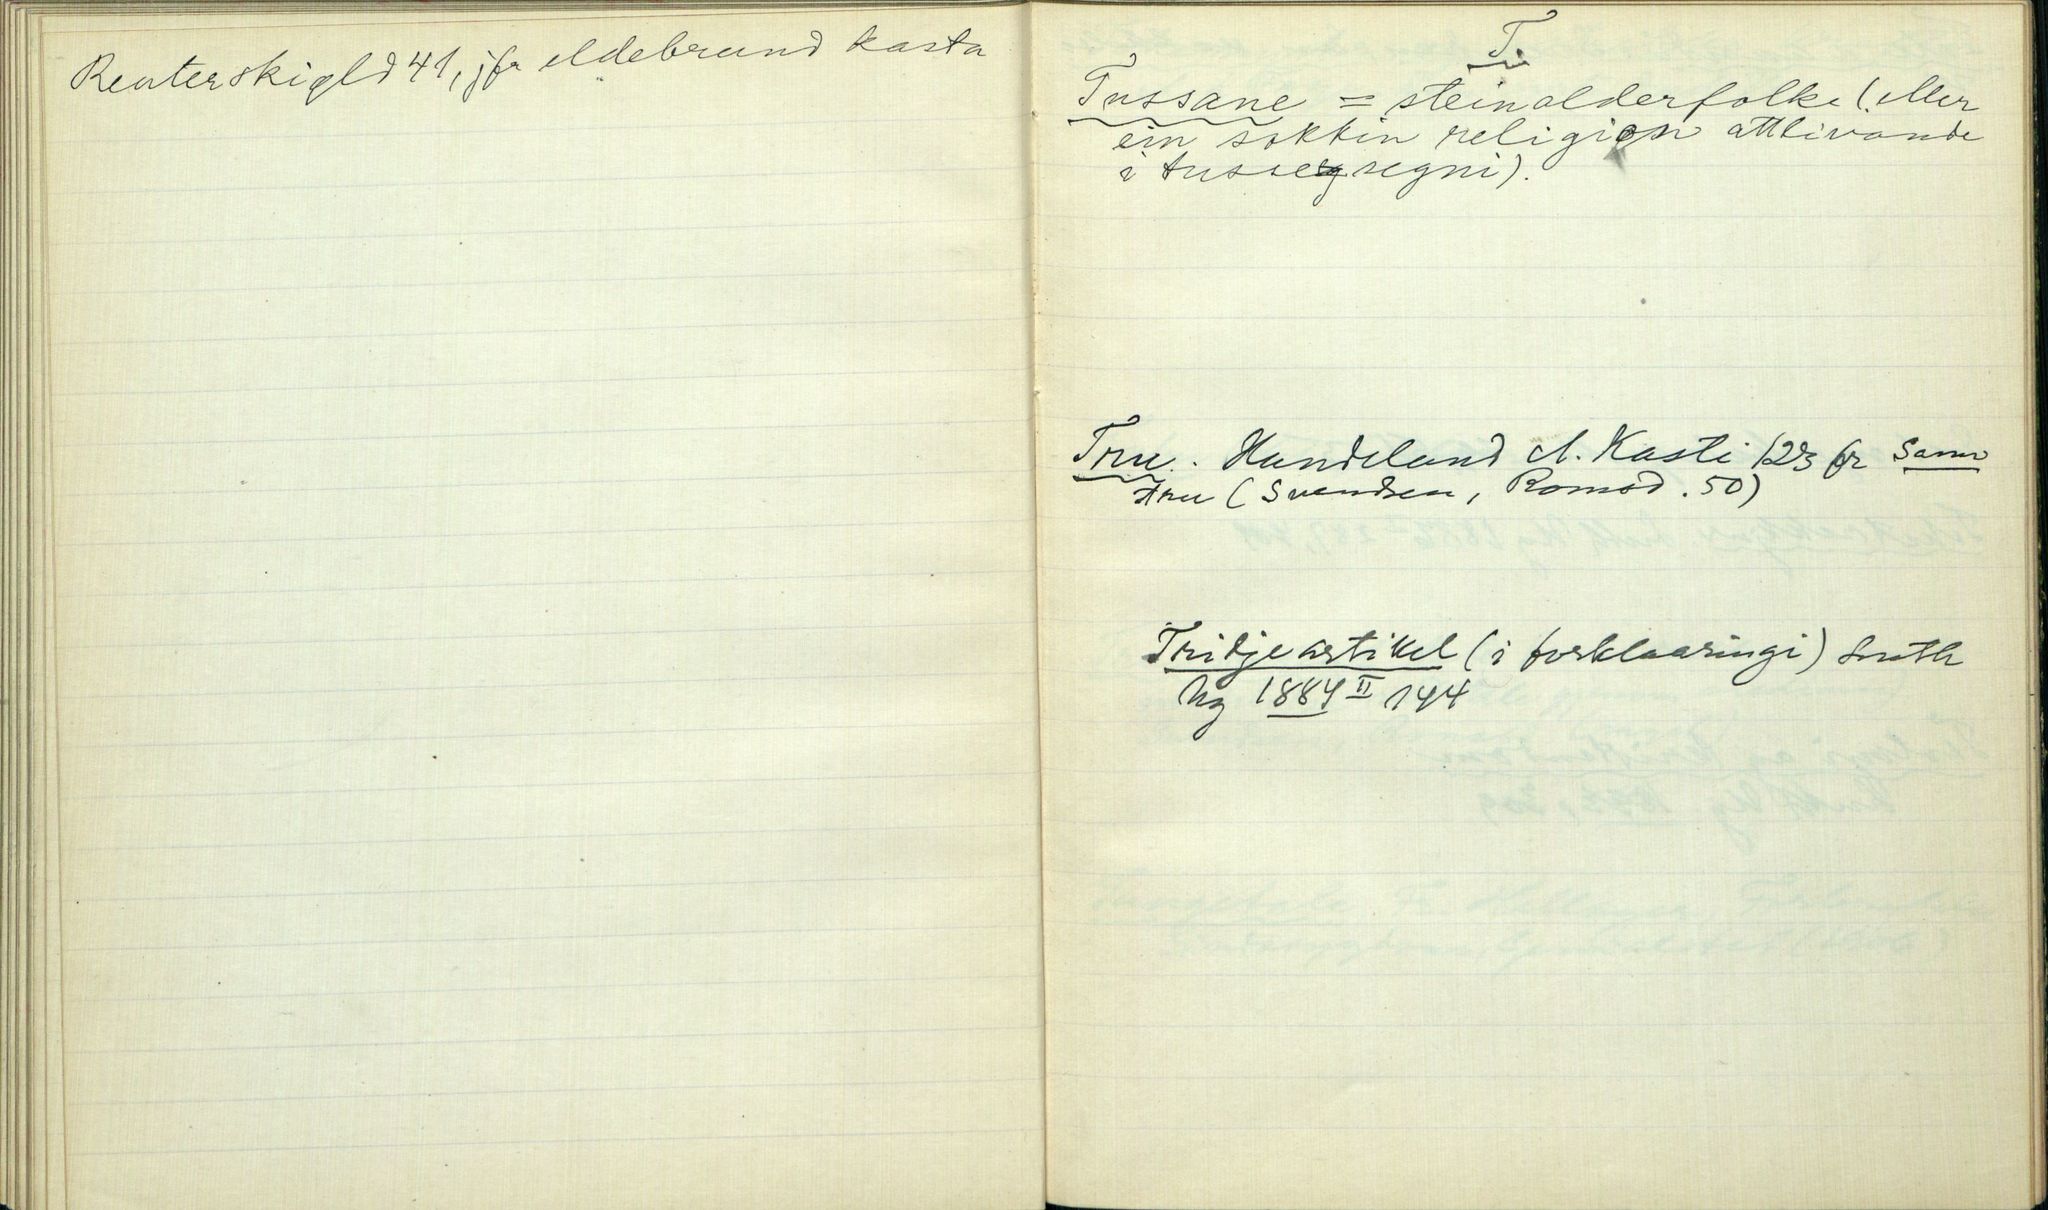 Reuterskiøld 41, jfr eldebrand kasta
T.
Tussane = steinalderfolke (eller
ein sokkin religion attlivande
i tussesegni).
Tru. Handeland A. Kasti 123 fr Samr
tru (Svendsen, Romsd. 50)
Tridje artikel (i forklaaringi) Luth
Ug 1884 II 144